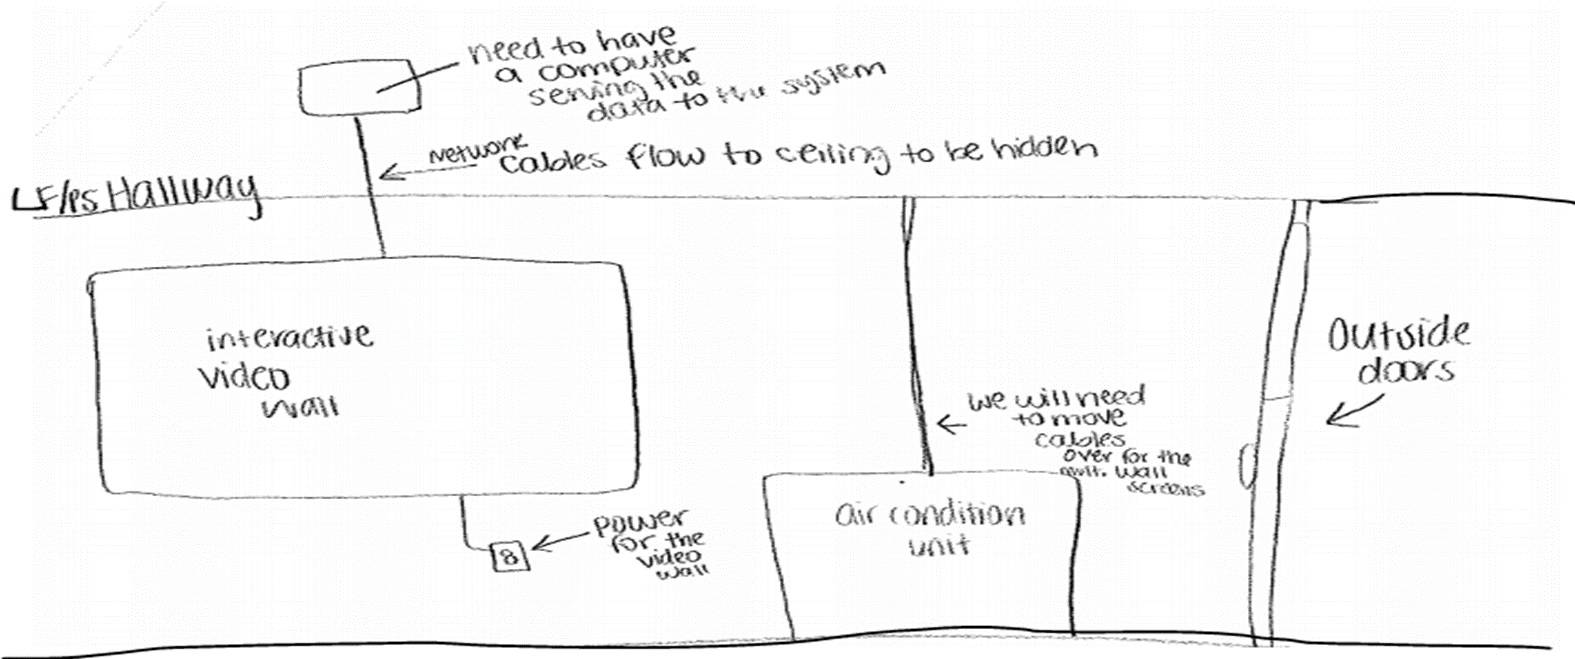 need to have
a computer
serving the
data to the system
Network
cables flow to ceiling to be hidden
Hallway
interactive
video
wall
Outside
doors
we will need
to move
cables
over for the
wall
screens
air condition
unit
power
for the
video
wall
8